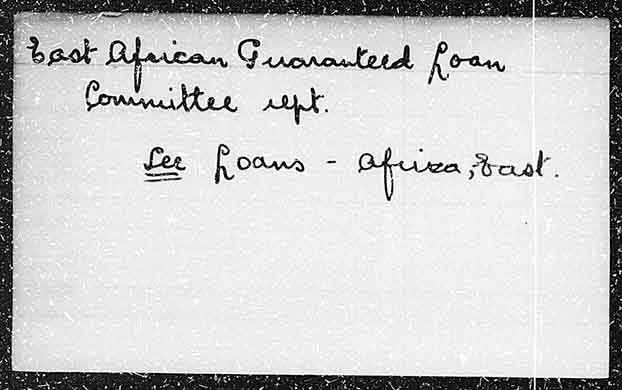 East African Guaranteed Loan
Committee rept.
See Loans - Africa, East.